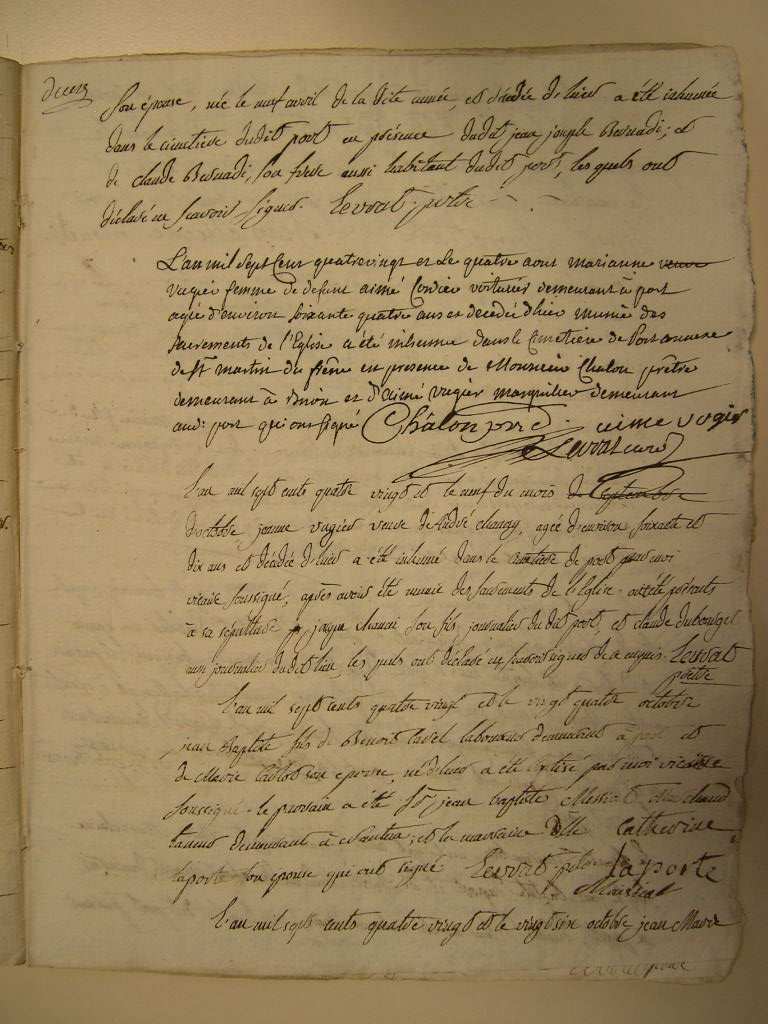 son épouse, née le neuf avril de la dite année, et décédée d'hier a été inhumée
dans le cimetiere dudit port en présence dudit jean joseph Besnadi; et
de claude Besnadi, son frere aussi habitant dudit port, les quels ont
déclaré ne sçavoir signer. Levrat prtre
L'an mil sept Cent quatrevingt et Le quatre aout marianne veuve
vugier femme de defunt aimé Cordier voiturier demeurant à port
agée d'environ soixante quatre ans et decedée d'hier munie des
sacrements de l'Eglise a été inhumée dans le Cimetiere de Port annexe
de st martin du frêne en presence de Monsieur Chalon prêtre
demeurant à et d'aimé vugier demeurant
audt port qui ont signé Châlon pre aime vugier
Levrat curé
L'an mil sept cents quatre vingt et le neuf du mois de septembre
d'octobre jeanne vugier veuve de andré, agée d'environ soixante et
dix ans et décédée d'hier a été inhumé dans le cimetiere de port par moi
vicaire soussigné, après avoir été munie des sacrements de l'Eglise ont été présents
à sa sépulture son fils, journalier du dit port, et claude
aussi journalier dudit lieu les quels ont déclaré ne sçavoir signer de ce enquis. Levrat
prêtre
L'an mil sept cents quatre vingt et le vingt quatre octobre
jean Baptiste fils de Benoit laboureur demeurant à port et
de Marie son epouse, né d'hier a été baptisé par moi vicaire
soussigné. le parrain a été sr jean baptiste marchand
taneur demeurant à Nantua; et la marraine dlle Catherine
laporte son epouse qui ont signé Levrat ptre laporte
L'an mil sept cents quatre vingt et le vingt six octobre jean Marie